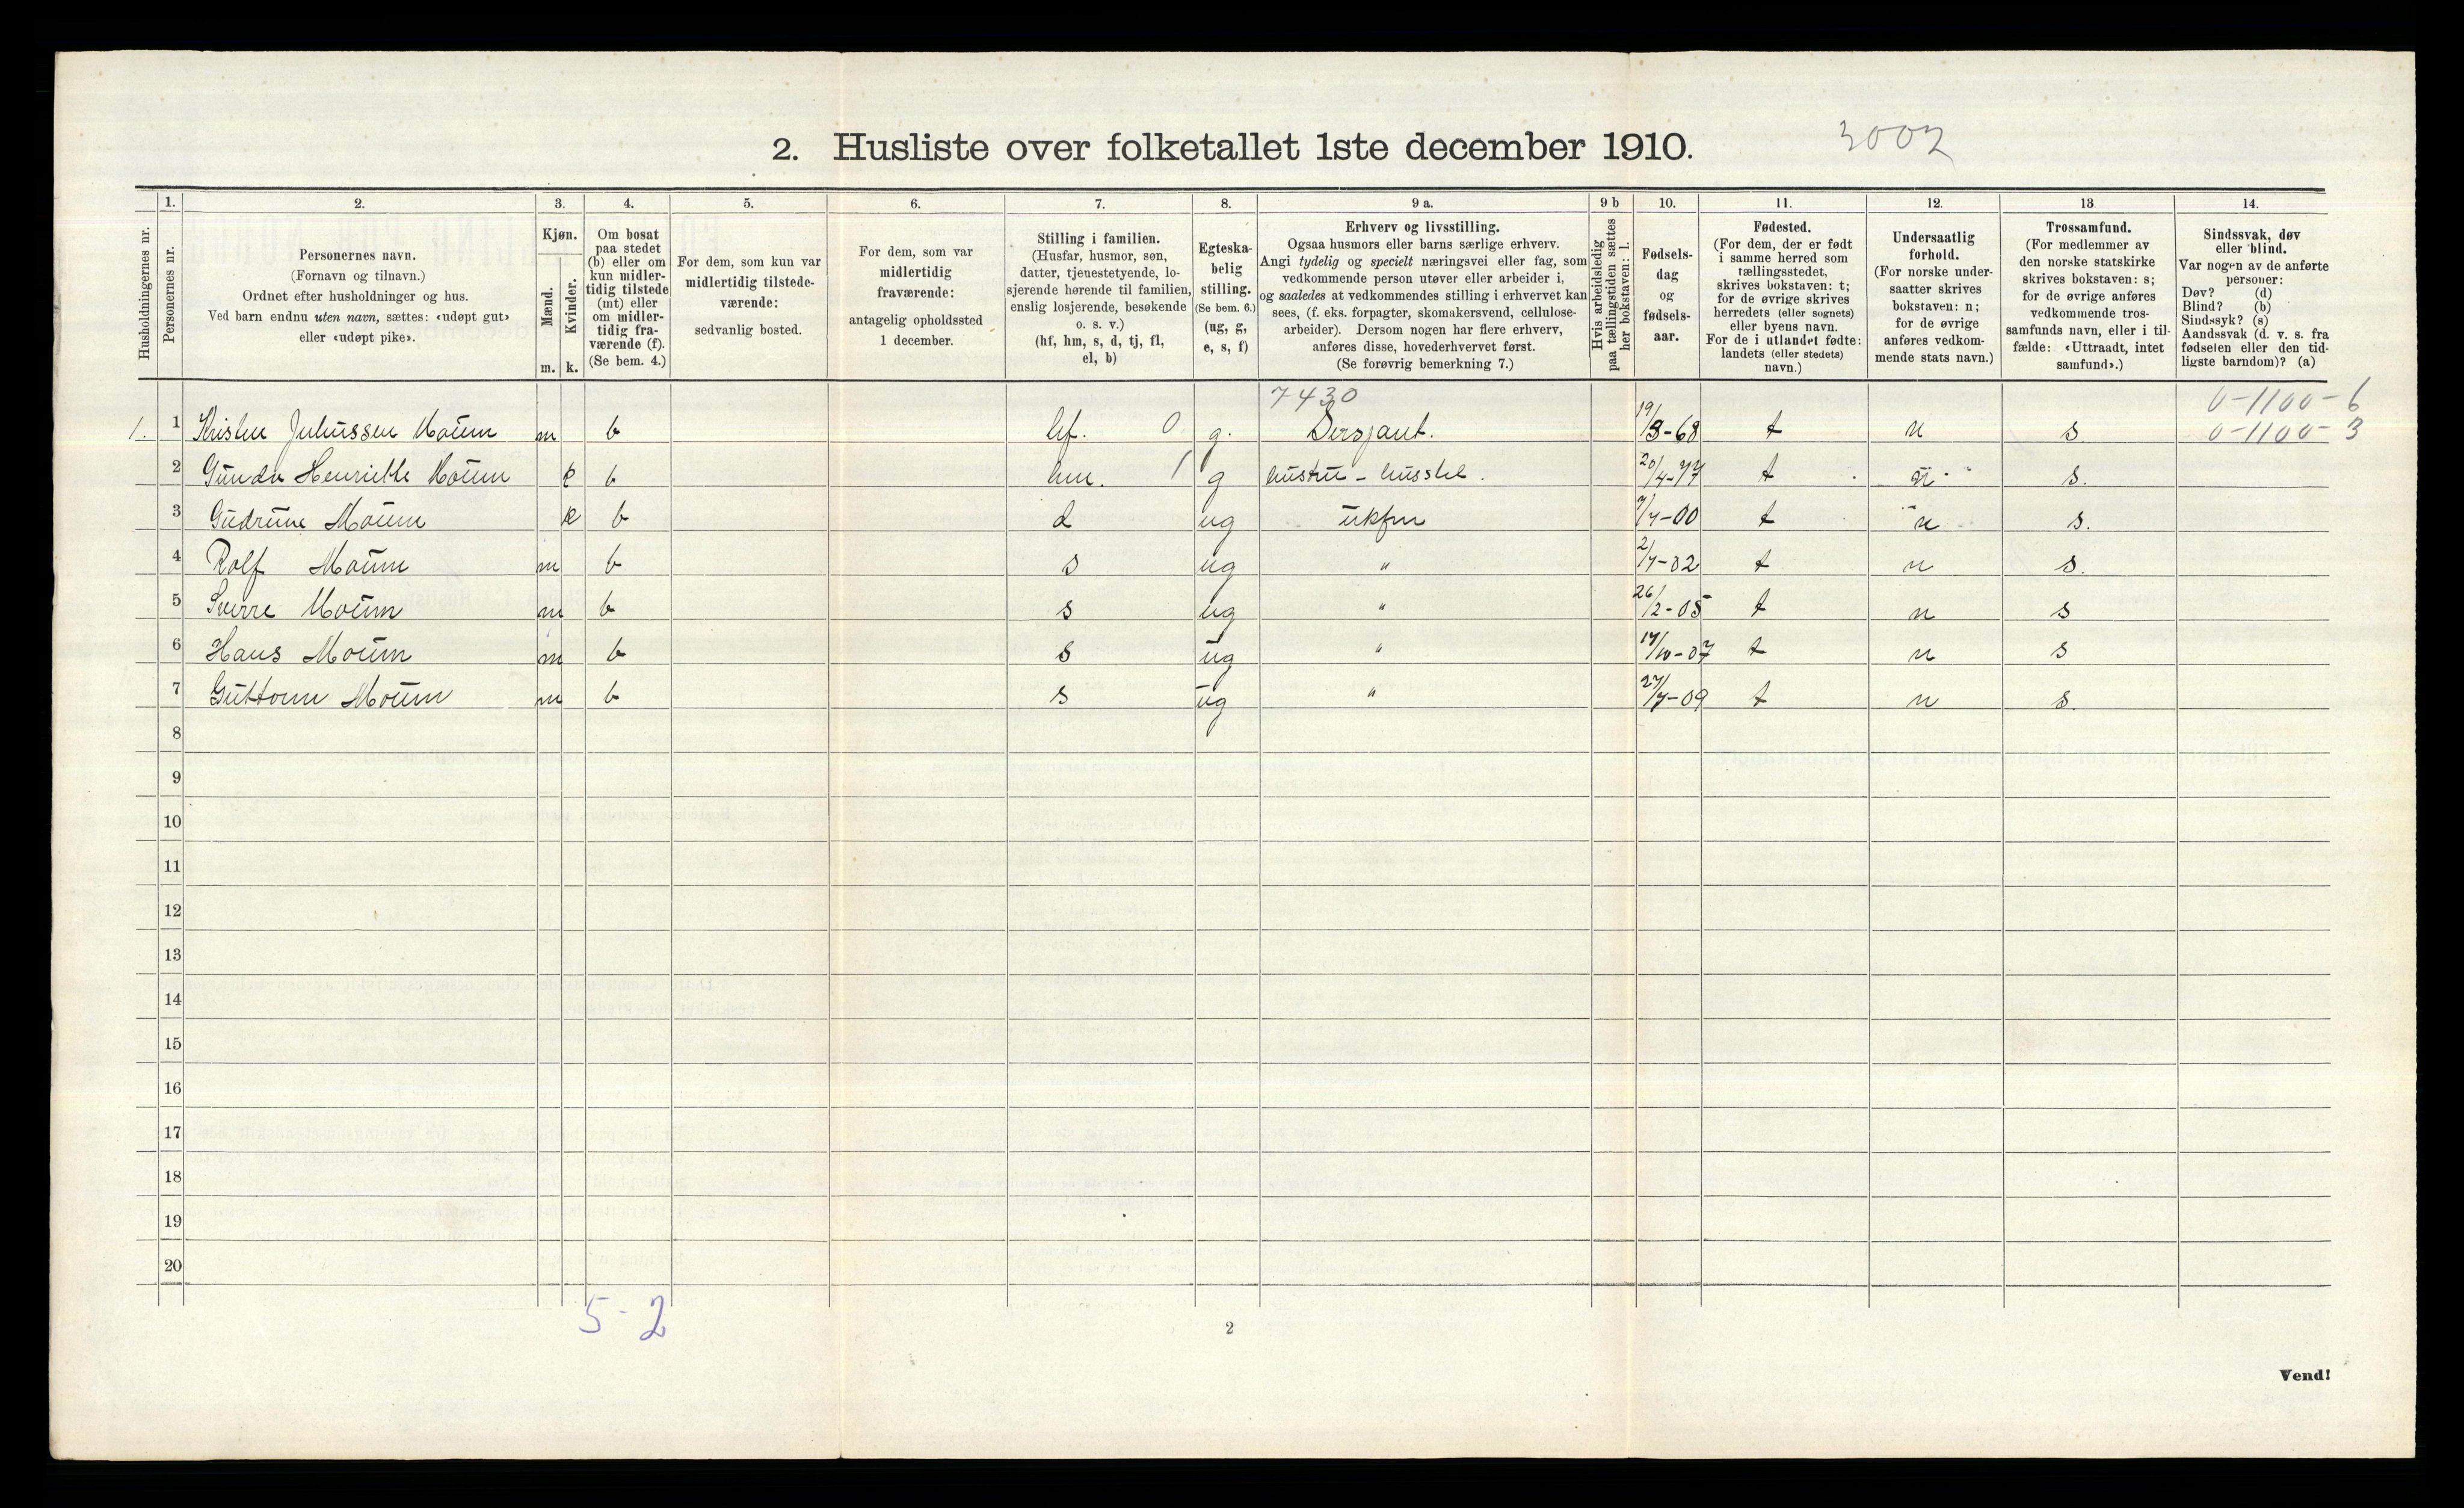 2. Husliste over folketallet 1ste december 1910.
3002
Husholdningernes nr.
1.
Personernes nr.
2.
Personernes navn.
(Fornavn og tilnavn.)
Ordnet efter husholdninger og hus.
Ved barn endnu uten navn, sættes: «udøpt gut»
eller «udøpt pike».
3.
Kjøn.
Mænd.
Kvinder.
m. k.
4.
Om bosat
paa stedet
(b) eller om
kun midler-
tidig tilstede
(mt) eller
om midler-
tidig fra-
værende (f).
(Se bem. 4.)
5.
For dem, som kun var
midlertidig tilstede-
værende:
sedvanlig bosted.
6.
For dem, som var
midlertidig
fraværende:
antagelig opholdssted
1 december.
7.
Stilling i familien.
(Husfar, husmor, søn,
datter, tjenestetyende, lo-
sjerende hørende til familien,
enslig losjerende, besøkende
o. s. v.)
(hf, hm, s, d, tj, fl,
el, b)
8.
Egteska-
belig
stilling.
(Se bem. 6.)
(ug, g,
e, s, f)
9 a.
Erhverv og livsstilling.
Ogsaa husmors eller barns særlige erhverv.
Angi tydelig og specielt næringsvei eller fag, som
vedkommende person utøver eller arbeider i,
og saaledes at vedkommendes stilling i erhvervet kan
sees, (f. eks. forpagter, skomakersvend, cellulose-
arbeider). Dersom nogen har flere erhverv,
anføres disse, hovederhvervet først.
(Se forøvrig bemerkning 7.)
9 b
Hvis arbeidsledig
paa tællingstiden sættes
her bokstaven: l.
10.
Fødsels-
dag
og
fødsels-
aar.
11.
Fødested.
(For dem, der er født
i samme herred som
tællingsstedet,
skrives bokstaven: t;
for de øvrige skrives
herredets (eller sognets)
eller byens navn.
For de i utlandet fødte:
landets (eller stedets)
navn.)
12.
Undersaatlig
forhold.
(For norske under-
saatter skrives
bokstaven: n;
for de øvrige
anføres vedkom-
mende stats navn.)
13
Trossamfund.
(For medlemmer av
den norske statskirke
skrives bokstaven: s;
for de øvrige anføres
vedkommende tros-
samfunds navn, eller i til-
fælde: «Uttraadt, intet
samfund».)
14.
Sindssvak, døv
eller blind.
Var nogen av de anførte
personer:
Døv? (d)
Blind? (b)
Sindssyk? (s)
Aandssvak (d. v. s. fra
fødselen eller den tid-
ligste barndom)? (a)
7430
0-1100-6
1. 1 Kristen Juliussen Moum m b hf. 0 g. Sersjant. 19/3-68 t n s 0-1100-3
2 Gunda Henriette Moum k b hm. 1 g hustru - husstel. 20/4-77 t n s.
3 Gudrune Moum k b d ug ukfm 7/7-00 t n s.
4 Rolf Moum m b s ug " 2/7-02 t n s.
5 Sverre Moum m b s ug " 26/2-05 t n s
6 Hans Moum m b s ug " 17/10-07 t n s
7 Guttorm Moum m b s ug " 27/7-09 t n s.
8
9
10
11
12
13
14
15
16
17
18
19
20
5-2
2
Vend!